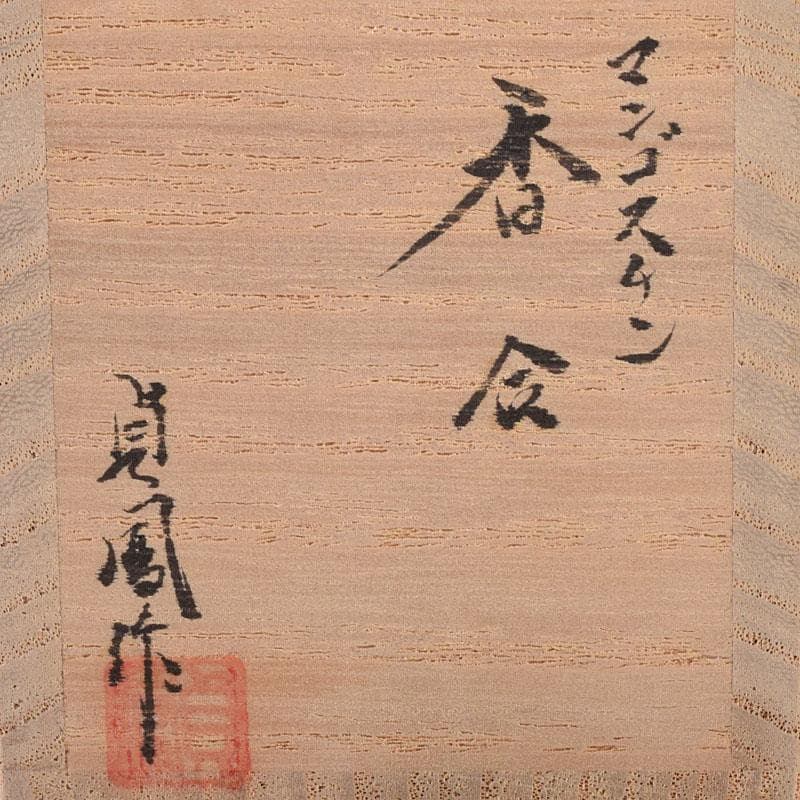 マンゴスチン
香合
貞鳳作